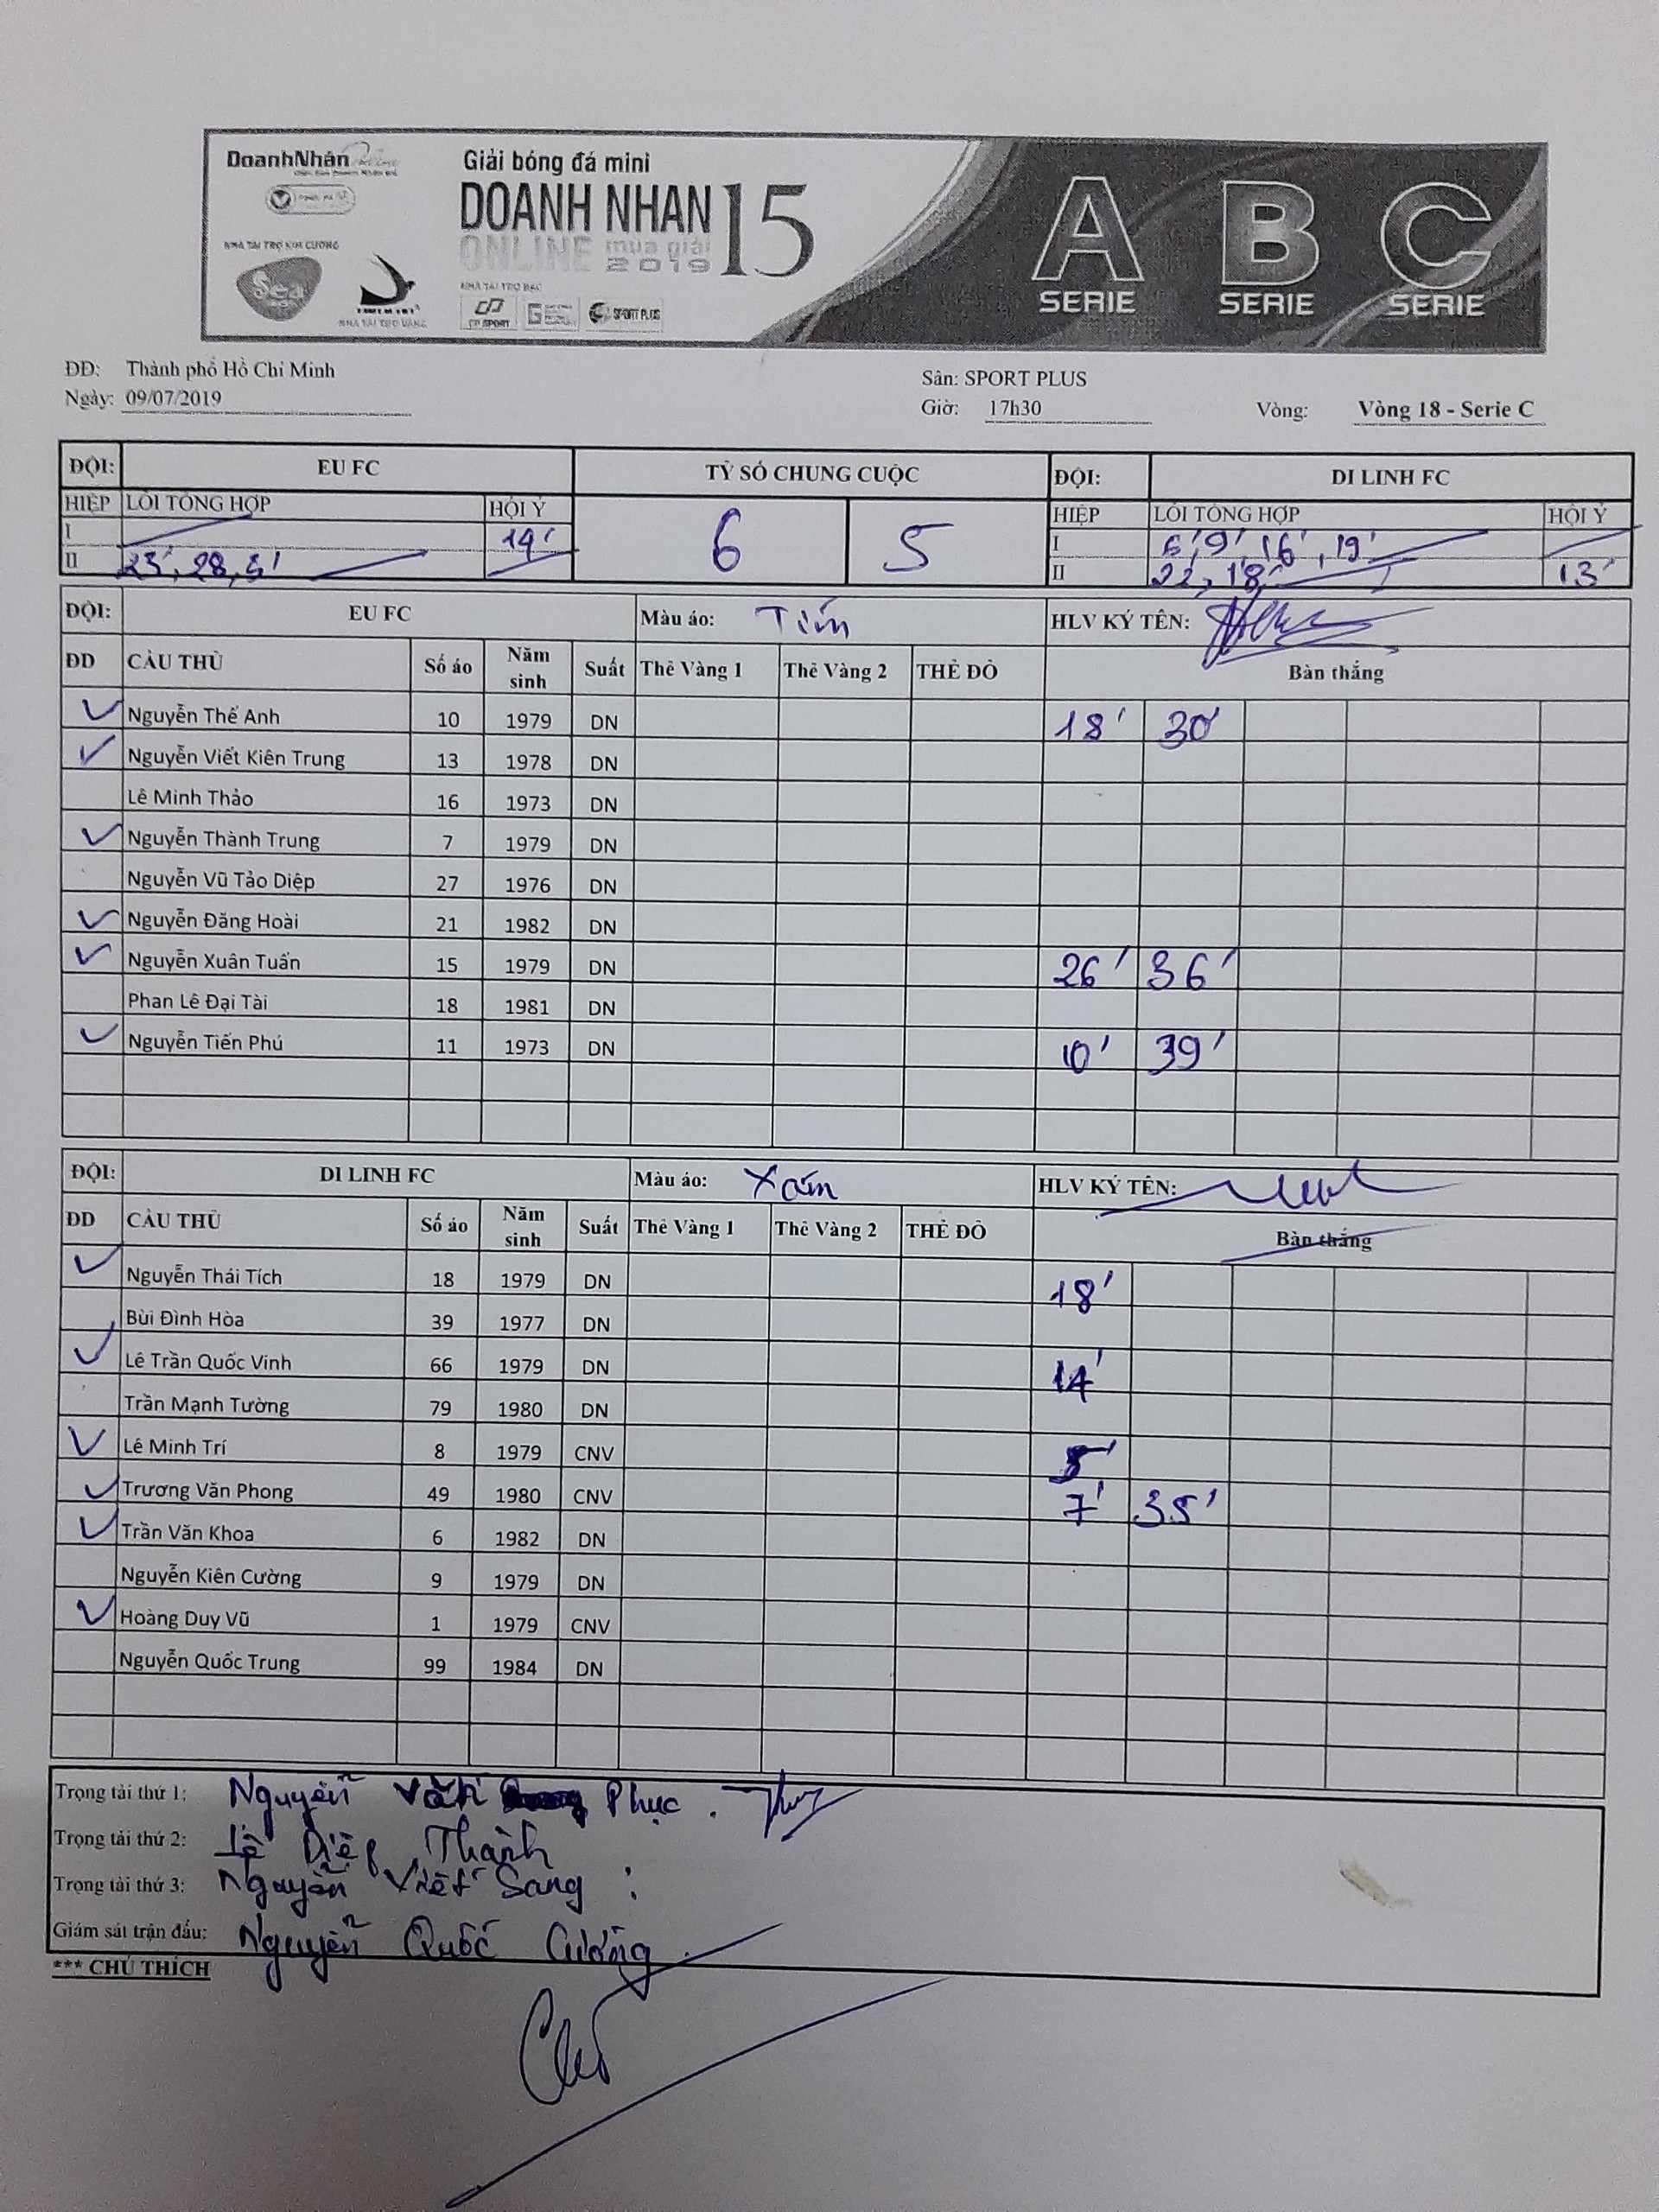 DoanhNhân
Giải bóng đá mini
DOANH NHAN 15
ONLINE mùa giải 2019
NHÀ TÀI TRỢ KIM CƯƠNG
Sea
NHÀ TÀI TRỢ VÀNG
NHÀ TÀI TRỢ BẠC
CP SPORT
SPORT PLUS
A B C
SERIE SERIE SERIE
ĐĐ: Thành phố Hồ Chí Minh
Sân: SPORT PLUS
Ngày: 09/07/2019
Giờ: 17h30 Vòng: Vòng 18 - Serie C
ĐỘI: EU FC TỶ SỐ CHUNG CUỘC ĐỘI: DI LINH FC
HIỆP LỖI TỔNG HỢP HỘI Ý 6 5 HIỆP LỖI TỔNG HỢP HỘI Ý
I 19' I 6', 9', 16', 19'
II II 13'
ĐỘI: EU FC Màu áo: Tím HLV KÝ TÊN:
ĐD CẦU THỦ Số áo Năm sinh Suất Thẻ Vàng 1 Thẻ Vàng 2 THẺ ĐỎ Bàn thắng
Nguyễn Thế Anh 10 1979 DN 18' 30'
Nguyễn Viết Kiên Trung 13 1978 DN
Lê Minh Thảo 16 1973 DN
Nguyễn Thành Trung 7 1979 DN
Nguyễn Vũ Tảo Diệp 27 1976 DN
Nguyễn Đăng Hoài 21 1982 DN
Nguyễn Xuân Tuấn 15 1979 DN 26' 36'
Phan Lê Đại Tài 18 1981 DN
Nguyễn Tiến Phú 11 1973 DN 10' 39'
ĐỘI: DI LINH FC Màu áo: Xám HLV KÝ TÊN:
ĐD CẦU THỦ Số áo Năm sinh Suất Thẻ Vàng 1 Thẻ Vàng 2 THẺ ĐỎ Bàn thắng
Nguyễn Thái Tích 18 1979 DN 18'
Bùi Đình Hòa 39 1977 DN
Lê Trần Quốc Vinh 66 1979 DN 14'
Trần Mạnh Tường 79 1980 DN
Lê Minh Trí 8 1979 CNV 5'
Trương Văn Phong 49 1980 CNV 7' 35'
Trần Văn Khoa 6 1982 DN
Nguyễn Kiên Cường 9 1979 DN
Hoàng Duy Vũ 1 1979 CNV
Nguyễn Quốc Trung 99 1984 DN
Trọng tài thứ 1: Nguyễn Văn Phục.
Trọng tài thứ 2: Lê Diệp Thành
Trọng tài thứ 3: Nguyễn Viết Sang
Giám sát trận đấu: Nguyễn Quốc Cường
*** CHÚ THÍCH